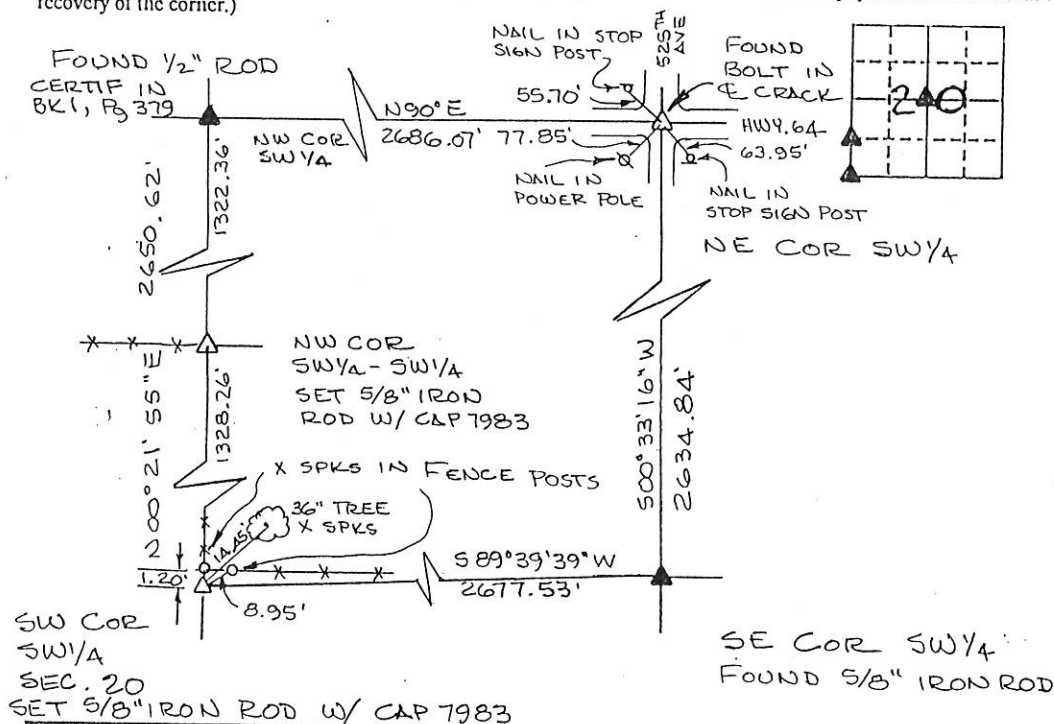 recovery of the corner.)
FOUND 1/2" ROD
CERTIF IN
BK1, Pg 379
NW COR
SW 1/4
N90° E
2686.07'
77.85'
NAIL IN STOP
SIGN POST
55.70'
525TH
AVE
FOUND
BOLT IN
℄ CRACK
HWY. 64
63.95'
NAIL IN
POWER POLE
NAIL IN
STOP SIGN POST
20
NE COR SW 1/4
2650.62'
1322.36'
NW COR
SW 1/4 - SW 1/4
SET 5/8" IRON
ROD W/ CAP 7983
00° 21' 55" E
1328.26'
X SPKS IN FENCE POSTS
36" TREE
X SPKS
14.45'
1.20'
8.95'
S00° 33' 16" W
2634.84'
S 89° 39' 39" W
2677.53'
SW COR
SW 1/4
SEC. 20
SET 5/8" IRON ROD W/ CAP 7983
SE COR SW 1/4
FOUND 5/8" IRON ROD